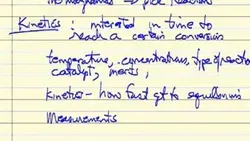 Kinetics: interested in time to
reach a certain conversion
temperature, concentrations, type of reactor
catalyst, inerts,
Kinetics - how fast get to equilibrium
Measurements